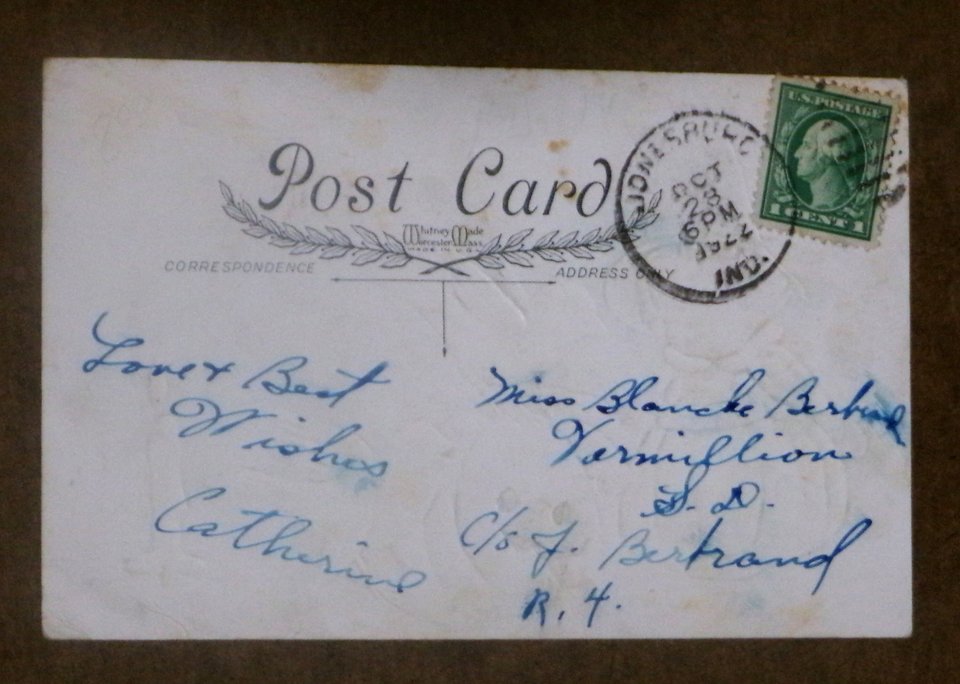 Post Card
Whitney Made
Worcester Mass.
MADE IN U.S.A.
CORRESPONDENCE
ADDRESS ONLY
JONESBURG
OCT
28
6 PM
IND.
U.S. POSTAGE
1 CENT 1
Love & Best
Wishes
Catherine
Miss Blanche Bertrand
Vermillion
S. D.
C/o J. Bertrand
R. 4.